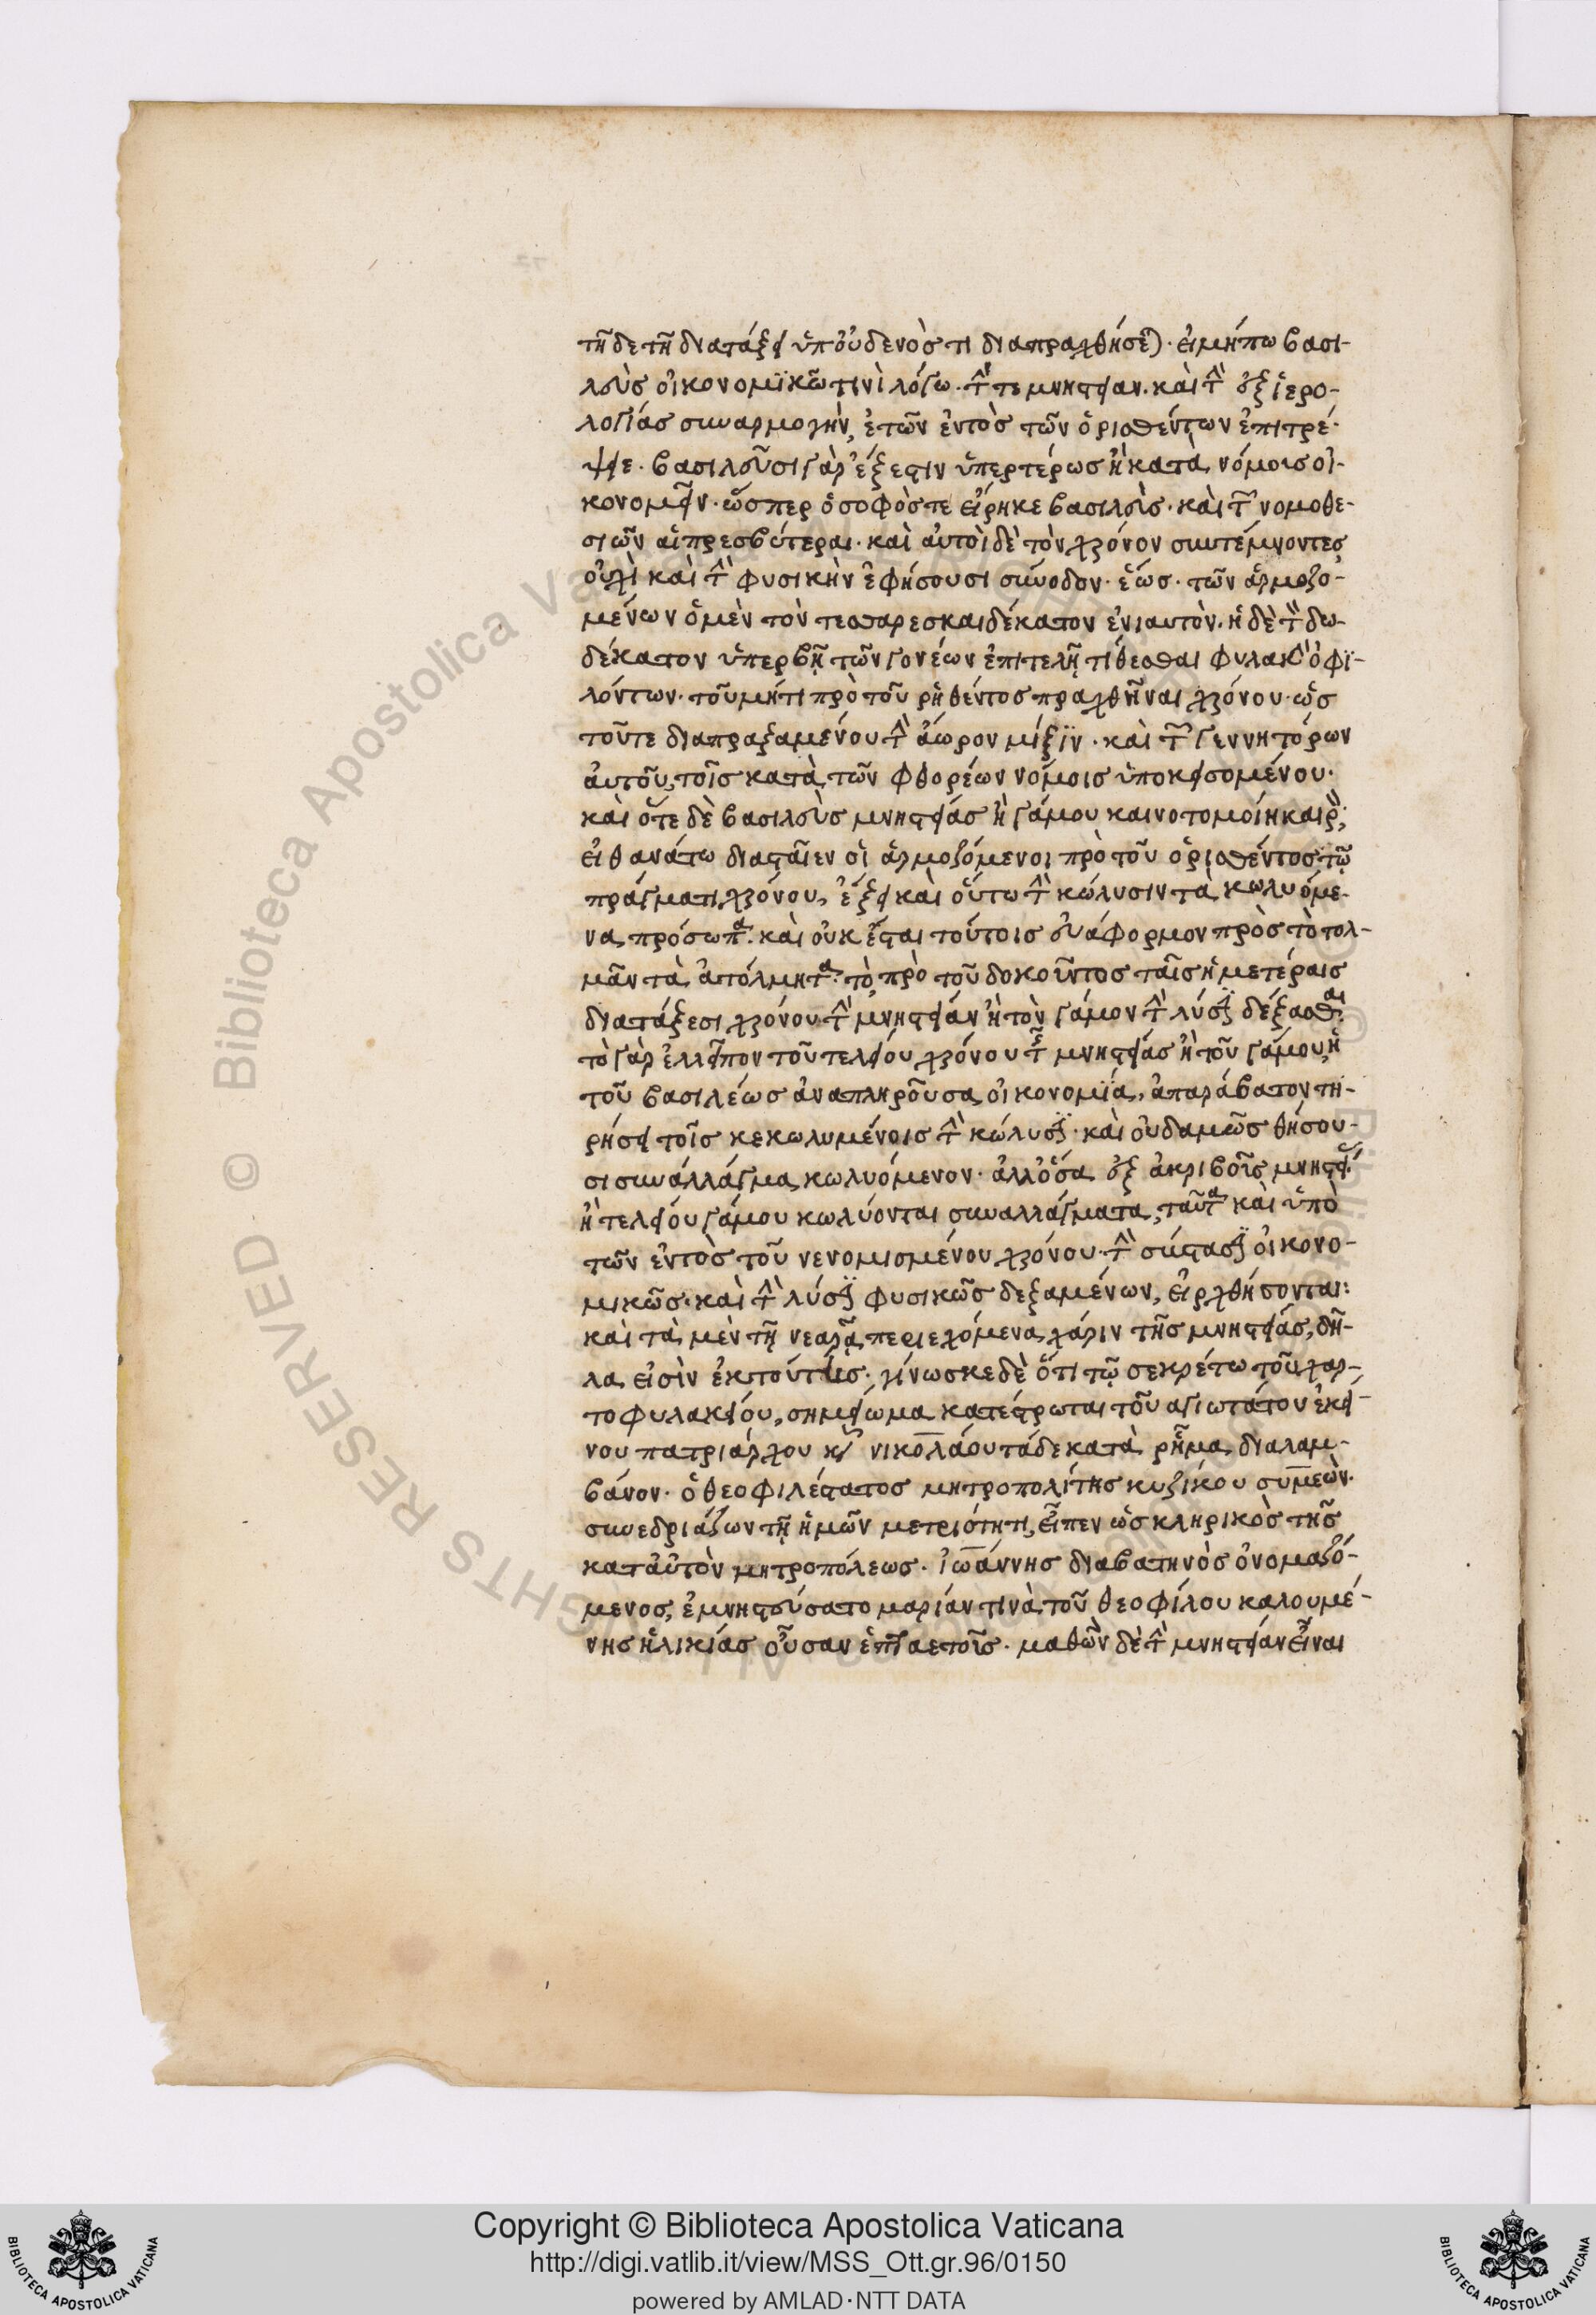 τῆδε τῆ διατάξει ὑπ' οὐδενός τι διαπραχθήσεται. εἰ μήπω βασι-
λεὺς οἰκονομϊκῶ τινὶ λόγω. τήν τε μνηστείαν. καὶ τὴν ἐξ ἱερο-
λογίας συναρμογὴν, ἐτῶν ἐντὸς τῶν ὁρισθέντων ἐπιτρέ-
ψει. βασιλεῦσι γὰρ ἔξεστιν ὑπερτέρως ἢ κατὰ νόμους οἰ-
κονομεῖν. ὥσπερ ὁ σοφός τε εἴρηκε βασιλεὺς. καὶ τῶν νομοθε-
σιῶν αἱ πρεσβύτεραι. καὶ αὐτοὶ δὲ τὸν χρόνον συντέμνοντες
οὐχὶ καὶ τὴν φυσικὴν ἐφήσουσι σύνοδον. ἕως. τῶν ἁρμοζο-
μένων ὁ μὲν τὸν τεσσαρεσκαιδέκατον ἐνιαυτὸν. ἡ δὲ τὸν δω-
δέκατον ὑπερβῆ τῶν γονέων ἐπιτελῆ τίθεσθαι φυλακὴν ὀφϊ-
λόντων. τοῦ μήτι πρὸ τοῦ ῥηθέντος πραχθῆναι χρόνου. ὡς
τοῦτε διαπραξαμένου τὴν ἄωρον μίξϊν. καὶ τῶν γεννητόρων
αὐτοῦ, τοῖς κατὰ τῶν φθορέων νόμοις ὑποκεισομένου.
καὶ ὅτε δὲ βασιλεὺς μνηστείας ἢ γάμου καινοτομοίη καιρὸν,
εἰ θανάτω διασταῖεν οἱ ἁρμοζόμενοι πρὸ τοῦ ὁρισθέντος τῶ
πράγματι χρόνου, ἕξει καὶ οὕτω τὴν κώλυσιν τὰ κωλυόμε-
να πρόσωπα. καὶ οὐκ ἔσται τούτοις εὐάφορμον πρὸς τὸ τολ-
μᾶν τὰ ἀτόλμητα. τὸ πρὸ τοῦ δοκοῦντος ταῖς ἡμετέραις
διατάξεσι χρόνου τὴν μνηστείαν ἢ τὸν γάμον τὴν λύσϊν δέξασθαι.
τὸ γὰρ ἐλλεῖπον τοῦ τελείου χρόνου τῆς μνηστείας ἢ τοῦ γάμου, ἡ
τοῦ βασιλέως ἀναπληροῦσα οἰκονομϊά, ἀπαράβατον τη-
ρήσει τοῖς κεκωλυμένοις τὴν κώλυσϊν. καὶ οὐδαμῶς θήσου-
σι συνάλλάγμα κωλυόμενον. ἀλλ' ὅσα ἐξ ἀκριβοῦς μνηστείας
ἢ τελείου γάμου κωλύονται συναλλάγματα, ταῦτα καὶ ὑπὸ
τῶν ἐντὸς τοῦ νενομισμένου χρόνου. τὴν σύστασϊν οἰκονο-
μικῶς. καὶ τὴν λύσϊν φυσικῶς δεξαμένων, εἰρχθήσονται:
καὶ τὰ μὲν τῆ νεαρᾶ περιεχόμενα χάριν τῆς μνηστείας, δῆ-
λα εἰσὶν ἐκ τούτοις. γίνωσκε δὲ ὅτι τῶ σεκρέτω τοῦ χαρ-
τοφυλακείου, σημείωμα κατέστρωται τοῦ ἁγιωτάτου ἐκεί-
νου πατριάρχου κυροῦ νικολάου τάδε κατὰ ῥῆμα διαλαμ-
βάνον. ὁ θεοφιλέστατος μητροπολίτης κυζίκου συμεὼν.
συνεδριάζων τῆ ἡμῶν μετριότητι, εἶπεν ὡς κληρικὸς τῆς
κατ' αὐτὸν μητροπόλεως. ἰωάννης διαβατηνὸς ὀνομαζό-
μενος, ἐμνηστεύσατο μαρίαν τινὰ τοῦ θεοφίλου καλουμέ-
νης ἡλικίας οὖσαν ἑπταετοῦς. μαθὼν δὲ τὴν μνηστείαν εἶναι
Copyright © Biblioteca Apostolica Vaticana
http://digi.vatlib.it/view/MSS_Ott.gr.96/0150
powered by AMLAD·NTT DATA